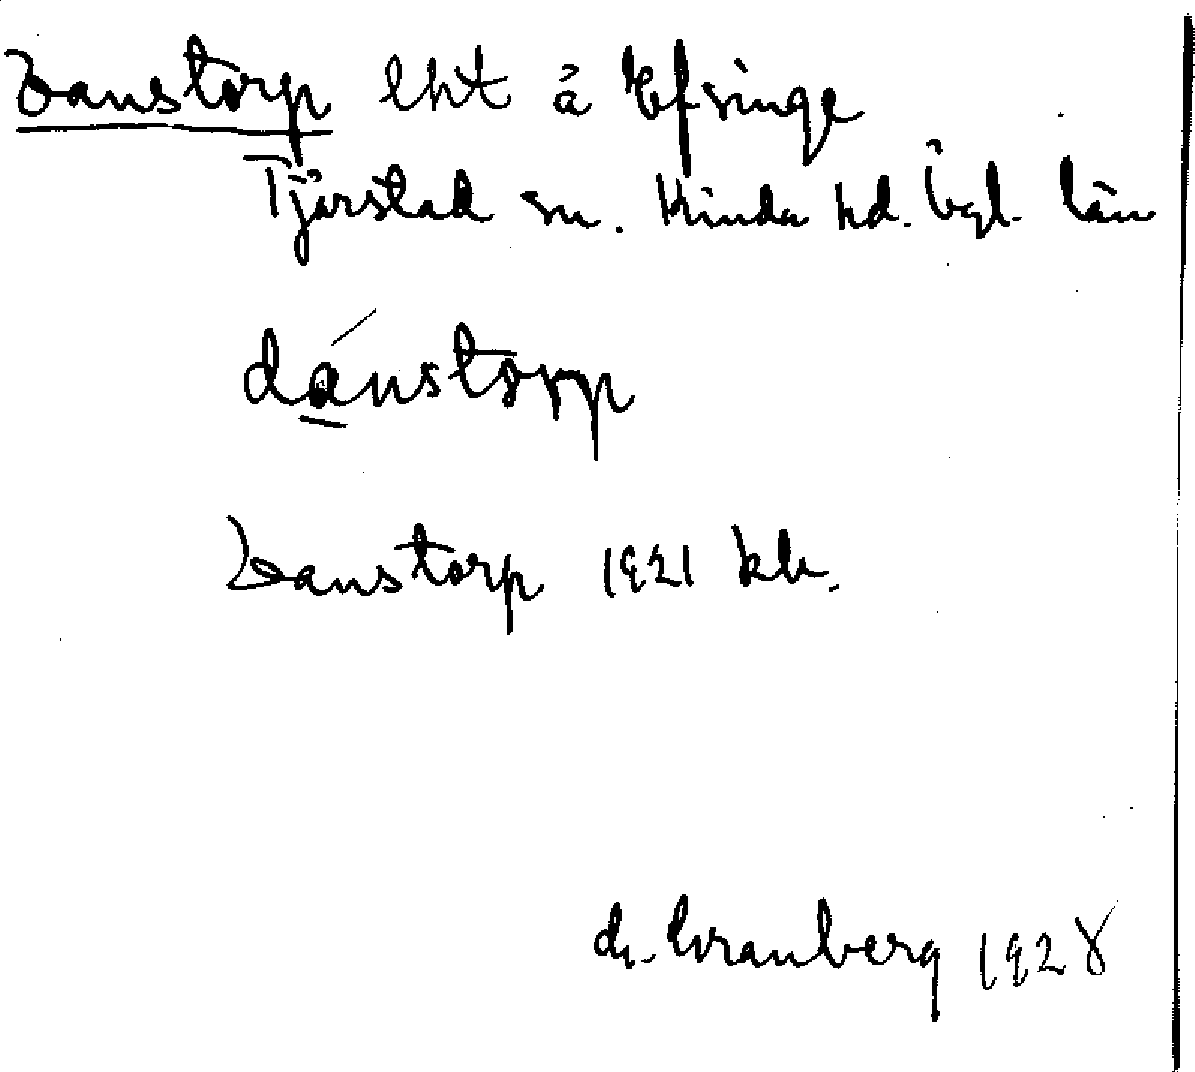 Danstorp lht å Efsinge
Tjärstad sn. Kinda hd. Ögl. län
dánstorp
Danstorp 1921 kk.
G. Granberg 1928